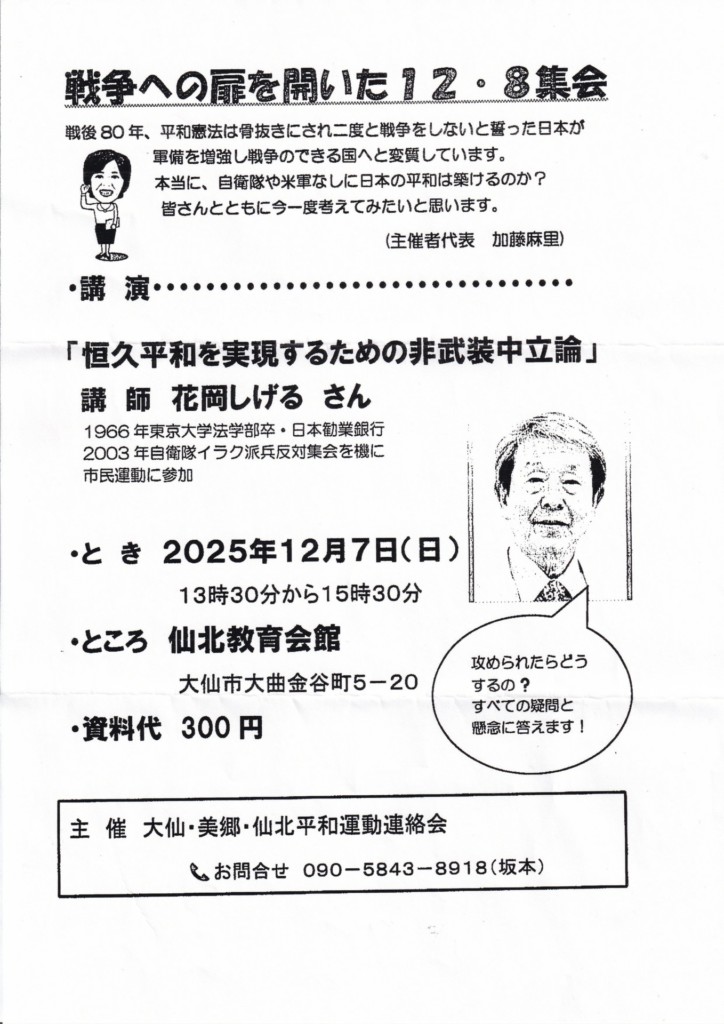 戦争への扉を開いた12・8集会
戦後80年、平和憲法は骨抜きにされ二度と戦争をしないと誓った日本が
軍備を増強し戦争のできる国へと変質しています。
本当に、自衛隊や米軍なしに日本の平和は築けるのか?
皆さんとともに今一度考えてみたいと思います。
(主催者代表 加藤麻里)
・講 演・・・・・・・・・・・・・・・・・・・・・・・・・・・・・・・・
「恒久平和を実現するための非武装中立論」
講 師 花岡しげる さん
1966年東京大学法学部卒・日本勧業銀行
2003年自衛隊イラク派兵反対集会を機に
市民運動に参加
・と き 2025年12月7日(日)
13時30分から15時30分
・ところ 仙北教育会館
大仙市大曲金谷町5-20
・資料代 300円
攻められたらどう
するの?
すべての疑問と
懸念に答えます!
主 催 大仙・美郷・仙北平和運動連絡会
📞お問合せ 090-5843-8918(坂本)